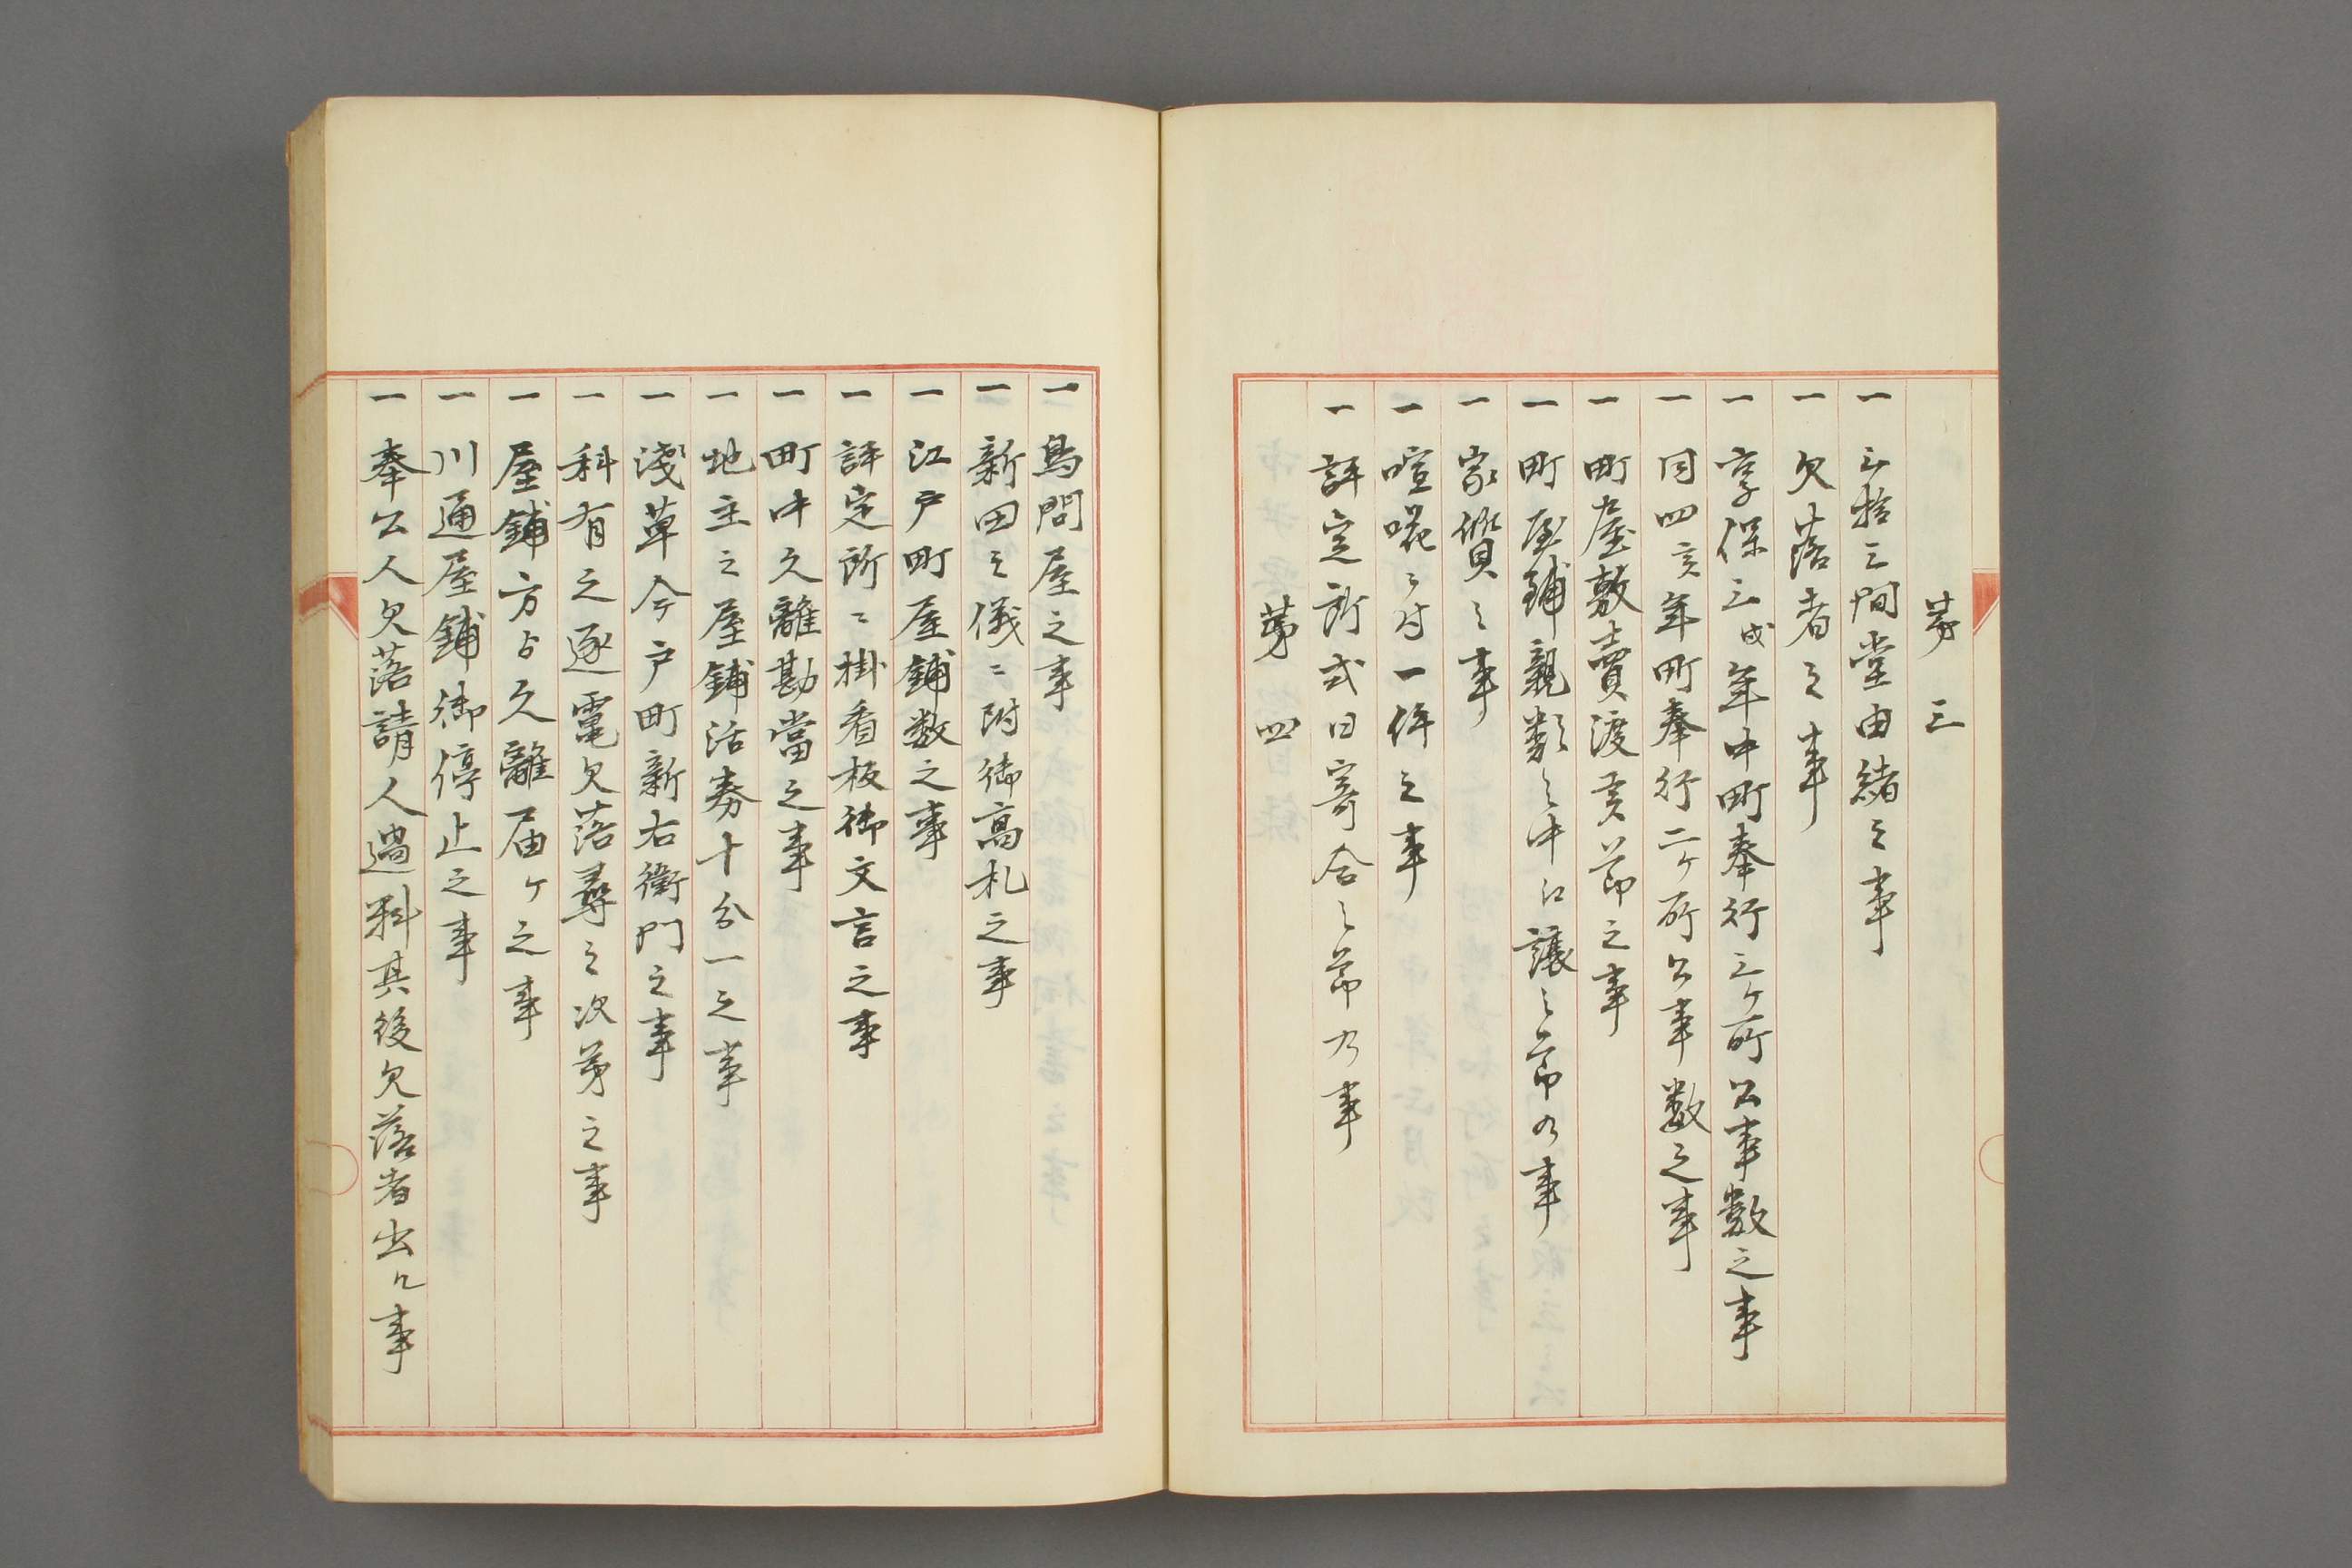 第三
一 三拾三間堂由緒之事
一 欠落者之事
一 享保三戌年中町奉行三ケ所公事数之事
一 同四亥年町奉行二ケ所公事数之事
一 町屋敷賣渡 節之事
一 町屋鋪親類之中江譲之節乃事
一 家質之事
一 喧嘩ニ付一件之事
一 評定所式日寄合之節乃事
第四
一 鳥問屋之事
一 新田之儀ニ附御高札之事
一 江戸町屋鋪数之事
一 評定所ニ掛看板御文言之事
一 町中久離勘當之事
一 地主之屋鋪沽券十分一之事
一 淺草今戸町新右衛門之事
一 科有之逐電欠落尋之次第之事
一 屋鋪方ゟ久離届ケ之事
一 川通屋鋪御停止之事
一 奉公人欠落請人過料其後欠落者出ル事